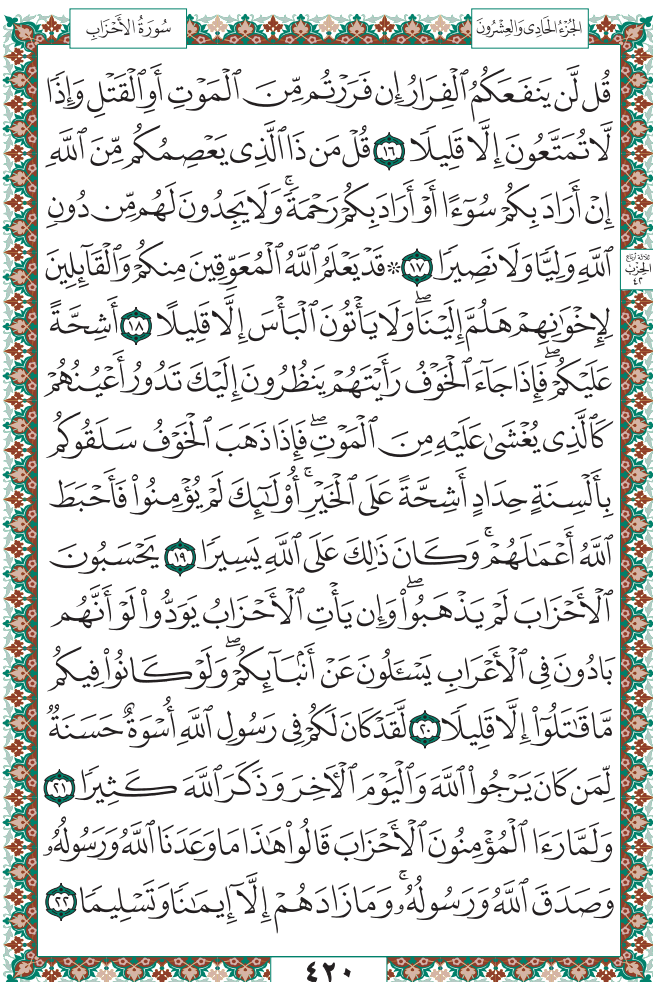 الجُزْءُ الحَادِي وَالعِشْرُونَ
سُورَةُ الأَحْزَابِ
قُل لَّن يَنفَعَكُمُ ٱلْفِرَارُ إِن فَرَرْتُم مِّنَ ٱلْمَوْتِ أَوِ ٱلْقَتْلِ وَإِذًا
لَّا تُمَتَّعُونَ إِلَّا قَلِيلًا ١٦ قُلْ مَن ذَا ٱلَّذِي يَعْصِمُكُم مِّنَ ٱللَّهِ
إِنْ أَرَادَ بِكُمْ سُوٓءًا أَوْ أَرَادَ بِكُمْ رَحْمَةً ۚ وَلَا يَجِدُونَ لَهُم مِّن دُونِ
ٱللَّهِ وَلِيًّا وَلَا نَصِيرًا ١٧ ۞ قَدْ يَعْلَمُ ٱللَّهُ ٱلْمُعَوِّقِينَ مِنكُمْ وَٱلْقَآئِلِينَ
ثلاثة أرباع
الحزب
٤٢
لِإِخْوَٰنِهِمْ هَلُمَّ إِلَيْنَا ۖ وَلَا يَأْتُونَ ٱلْبَأْسَ إِلَّا قَلِيلًا ١٨ أَشِحَّةً
عَلَيْكُمْ ۖ فَإِذَا جَآءَ ٱلْخَوْفُ رَأَيْتَهُمْ يَنظُرُونَ إِلَيْكَ تَدُورُ أَعْيُنُهُمْ
كَٱلَّذِي يُغْشَىٰ عَلَيْهِ مِنَ ٱلْمَوْتِ ۖ فَإِذَا ذَهَبَ ٱلْخَوْفُ سَلَقُوكُم
بِأَلْسِنَةٍ حِدَادٍ أَشِحَّةً عَلَى ٱلْخَيْرِ ۚ أُو۟لَٰٓئِكَ لَمْ يُؤْمِنُوا۟ فَأَحْبَطَ
ٱللَّهُ أَعْمَٰلَهُمْ ۚ وَكَانَ ذَٰلِكَ عَلَى ٱللَّهِ يَسِيرًا ١٩ يَحْسَبُونَ
ٱلْأَحْزَابَ لَمْ يَذْهَبُوا۟ ۖ وَإِن يَأْتِ ٱلْأَحْزَابُ يَوَدُّوا۟ لَوْ أَنَّهُم
بَادُونَ فِي ٱلْأَعْرَابِ يَسْـَٔلُونَ عَنْ أَنۢبَآئِكُمْ ۖ وَلَوْ كَانُوا۟ فِيكُم
مَّا قَٰتَلُوٓا۟ إِلَّا قَلِيلًا ٢٠ لَّقَدْ كَانَ لَكُمْ فِي رَسُولِ ٱللَّهِ أُسْوَةٌ حَسَنَةٌ
لِّمَن كَانَ يَرْجُوا۟ ٱللَّهَ وَٱلْيَوْمَ ٱلْـَٔاخِرَ وَذَكَرَ ٱللَّهَ كَثِيرًا ٢١
وَلَمَّا رَءَا ٱلْمُؤْمِنُونَ ٱلْأَحْزَابَ قَالُوا۟ هَٰذَا مَا وَعَدَنَا ٱللَّهُ وَرَسُولُهُۥ
وَصَدَقَ ٱللَّهُ وَرَسُولُهُۥ ۚ وَمَا زَادَهُمْ إِلَّآ إِيمَٰنًا وَتَسْلِيمًا ٢٢
٤٢٠